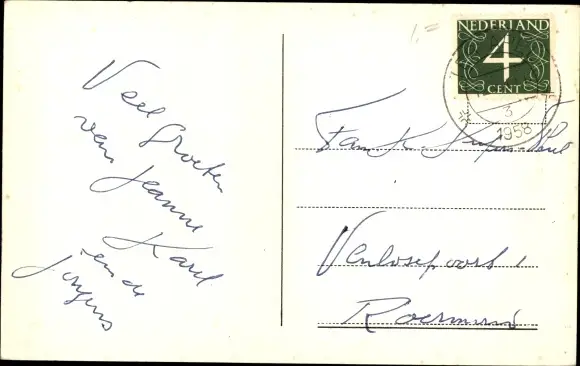 Veel groeten
van Jeanne
Karel
en de
jongens
1.=
NEDERLAND
4
CENT
3
1958
Fam
Venlosepoort 1
Roermond